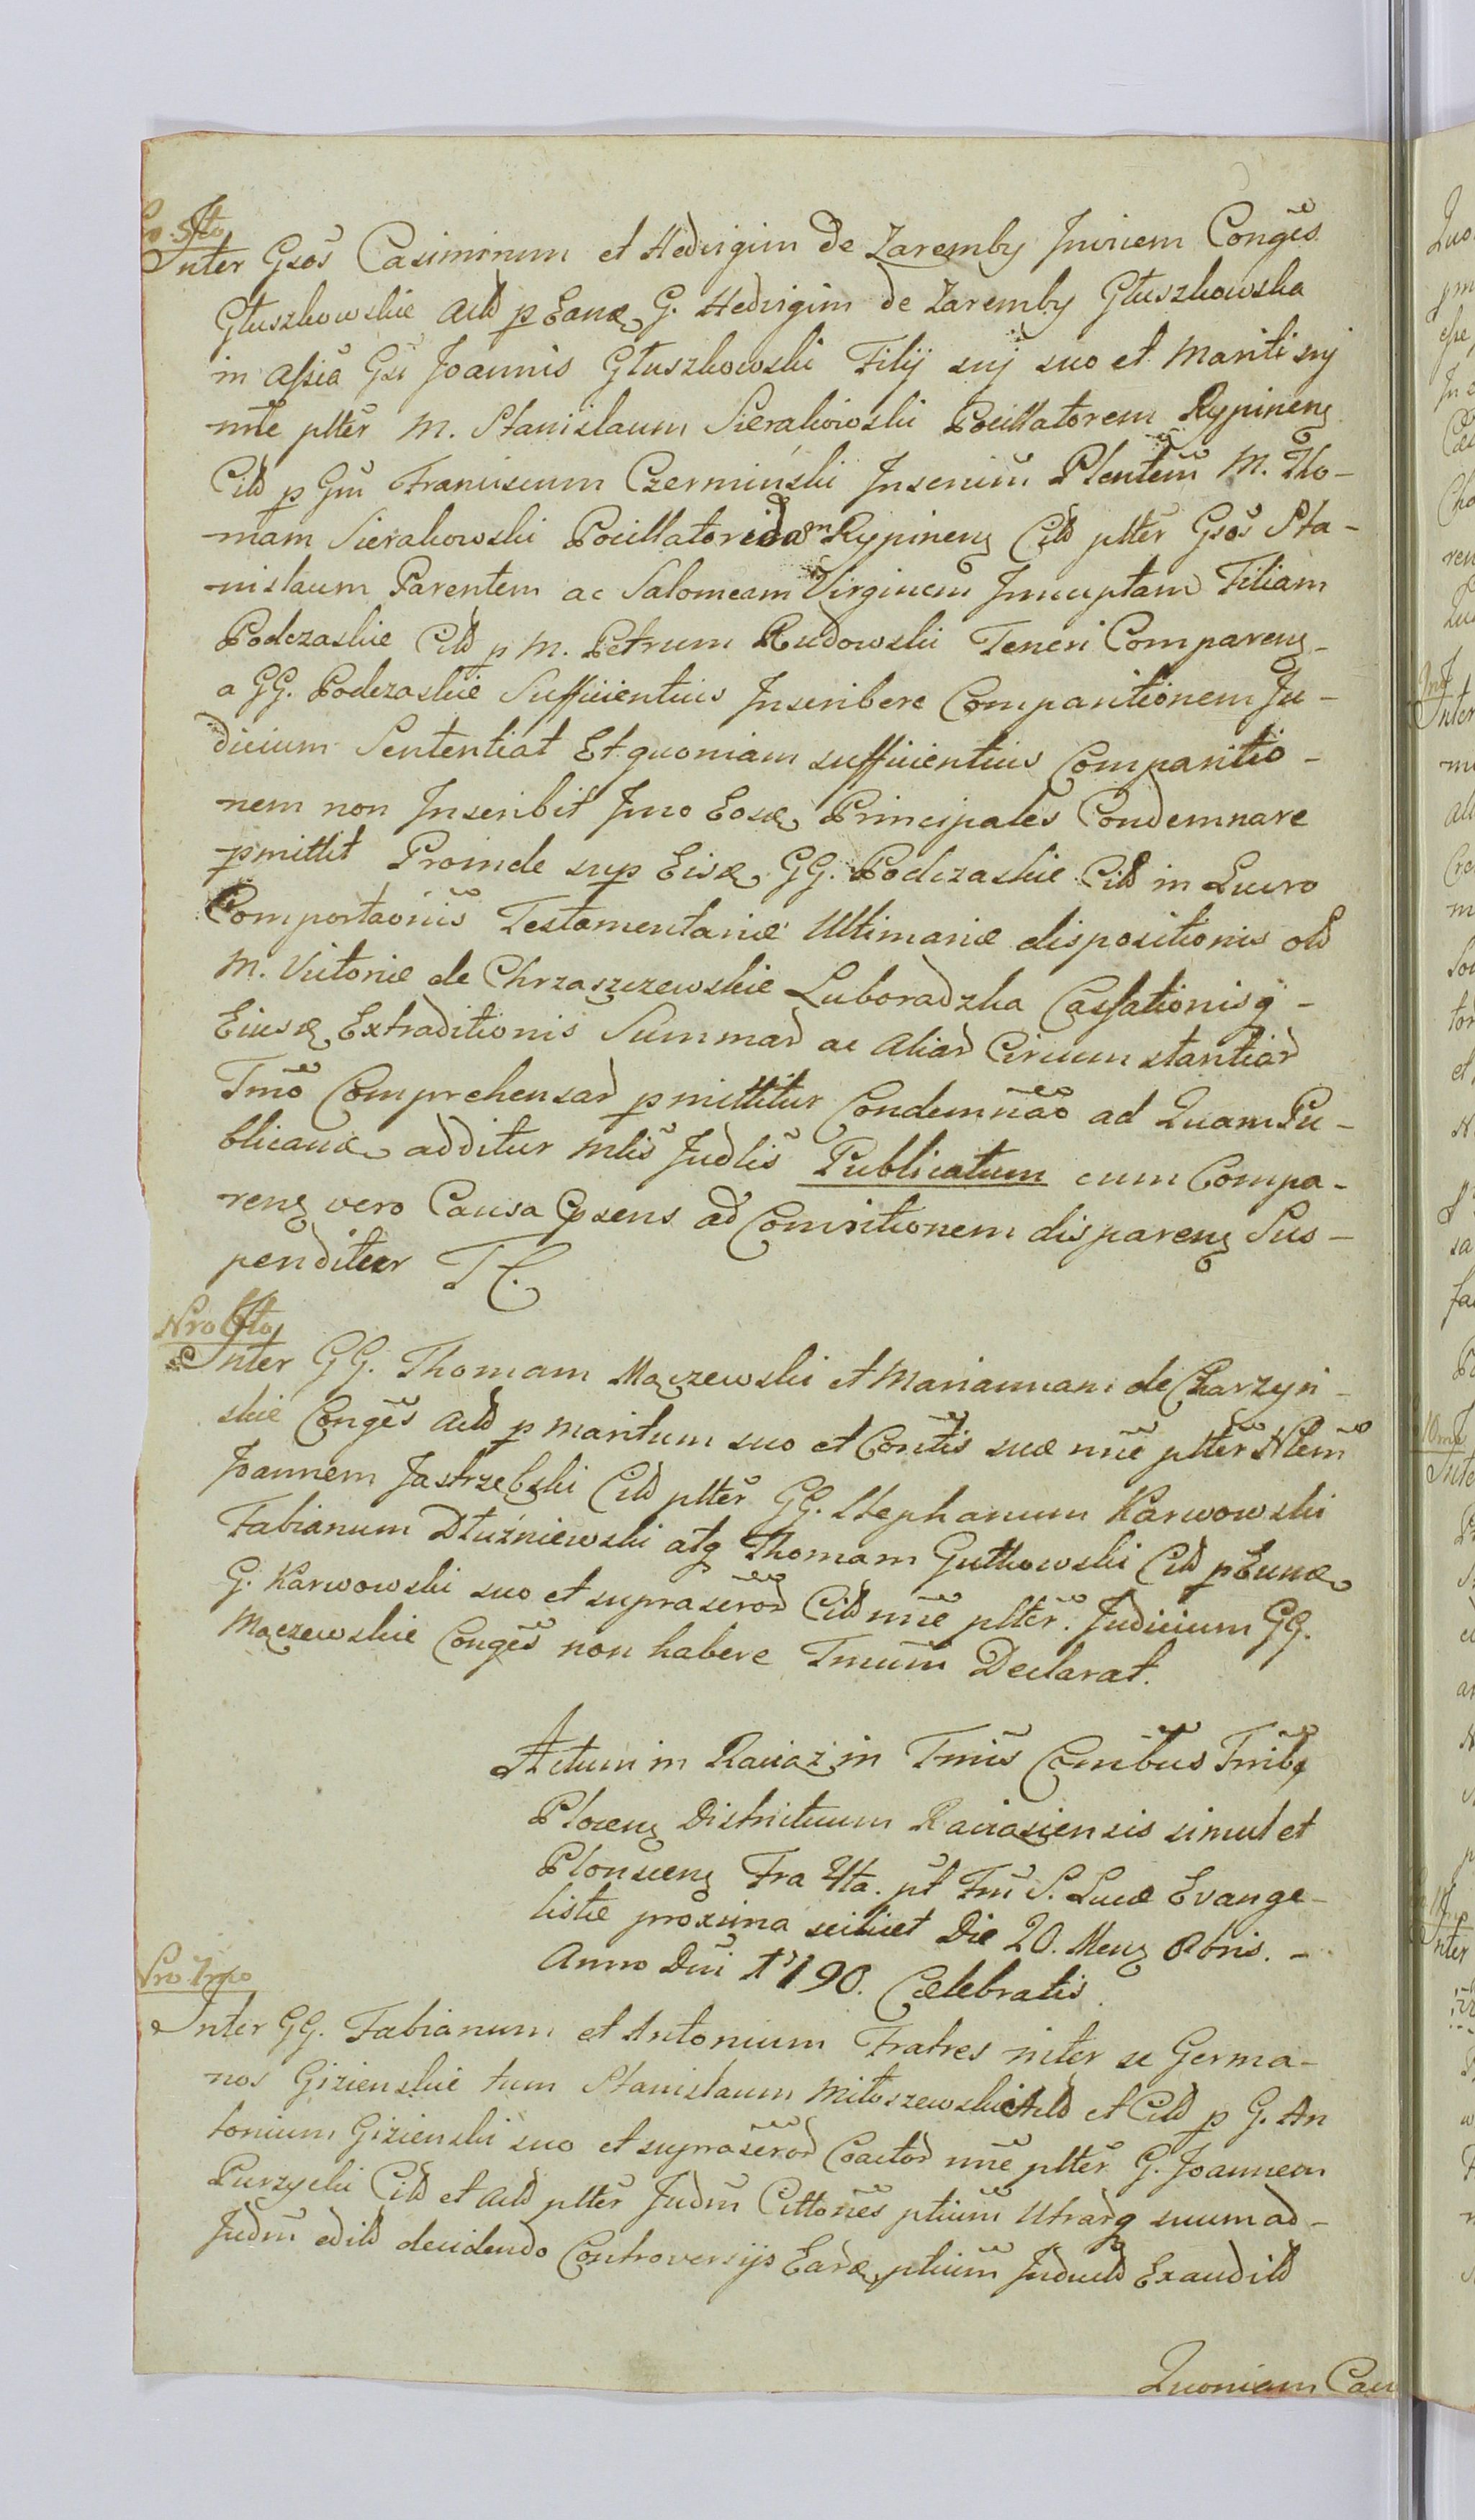 Nro 5to
Inter Gsos Casimirum et Hedvigim de Zaremby Invicem Conges
Głuszkowskie Actd p Eand G. Hedvigim de Zaremby Głuszkowska
in assia Gsi Joannis Głuszkowski Filij suj suo et Mariti suj
nne pltter M. Stanislaum Sierakowski Pocillatorem Rypineng
Citd p Gm Franciscum Czermiński Inscriũ Plentem M. Tho-
-mam Sierakowski Pocillatoridam Rypineng Citd pltter Gsos Sta-
-nislaum Parentem ac Salomeam Virginem Innuptam Filiam
Podczaskie Citd p M. Petrum Rudowski Teneri Compareng-
a GG. Podczaskie Sufficientius Inscribere Comparitionem Ju-
dicium Sententiat Et quoniam sufficientius Comparitio-
nem non Inscribit Imo Eosd Principales Condemnare
pmittit Proinde sup Eisd GG. Podczaskie Citd in Lucro
Comportaonis Testamentariæ Ultimariæ dispositionis old
M. Victoriæ de Chrzaszczewskie Luboradzka Cassationisq-
Eiusd Extraditionis Summard ac Aliard Circumstantiard
Tmo Comprehensard pmittitur Condemnao ad Quam Pu-
blicand additur Mlis Judlis Publicatum cum Compa-
reng vero Causa Ppsens ad Comritionem dispareng Sus-
penditur
Nro 6to
Inter GG. Thomam Mączewski et Mariannam de Charzyn-
skie Conges Actd p Maritum suo et Contis suæ nne pltter Nlem
Joannem Jastrzębski Citd pltter GG. Stephanum Karwowski
Fabianum Dłużniewski atq Thomam Gutkowski Citd p Eund
G. Karwowski suo et supraserod Citd nne pltter. Judicium GG.
Mączewskie Conges non habere Tmum Declarat.
Actum in Raciąż in Tmis Conibus Tribq
Ploceng Districtuum Raciąziensis simul et
Plonsceng Fra 4ta. pt Fm S. Lucæ Evange-
listæ proxima scilicet Die 20. Meng 8bris. -
Anno Dni 1790. Celebratis.
Nro 7mo
Inter GG. Fabianum et Antonium Fratres inter se Germa-
nos Gizienskie tum Stanislaum Miłoszewski Actd et Citd p G. An
tonium Gizienski suo et supraserod Coactod nne pltter G. Joannem
Purzycki Citd et Actd pltter Judm Cittones ptium Utradq suum ad-
Judm edild decidendo Controversijs Eard ptium Juduld Exaudild
Quoniam Cau